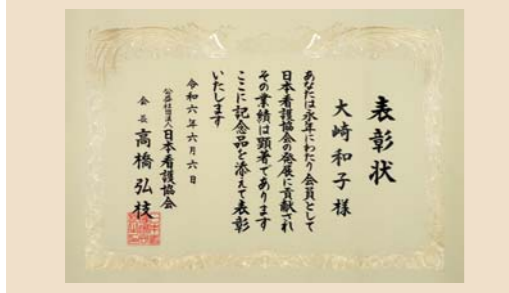 表彰状
大崎和子様
あなたは永年にわたり会員として
日本看護協会の発展に貢献され
その業績は顕著であります
ここに記念品を添えて表彰
いたします
令和六年六月六日
公益社団法人日本看護協会
会長 高橋弘枝